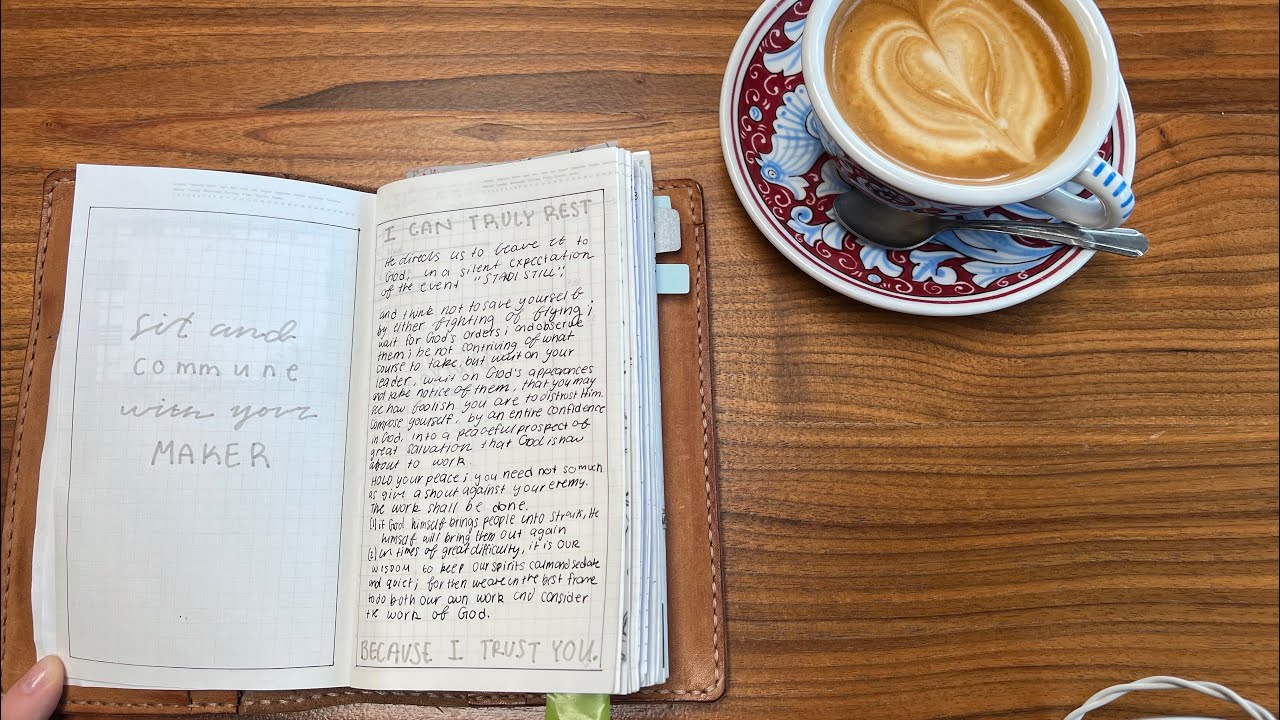 sit and
commune
with your
MAKER
I CAN TRULY REST
He directs us to leave it to
God, in a silent expectation
of the event "STAND STILL";
and think not to save yourself
by either fighting or flying;
wait for God's orders; and observe
them; be not contriving of what
course to take, but wait on your
leader, wait on God's appearances
and take notice of them, that you may
see how foolish you are to distrust Him.
Compose yourself, by an entire confidence
in God, into a peaceful prospect of
great salvation that God is now
about to work.
HOLD your peace; you need not so much
as give a shout against your enemy.
The work shall be done.
if God himself brings people into straits, He
himself will bring them out again
in times of great difficulty, it is our
wisdom to keep our spirits calm and sedate
and quiet; for then we are in the best frame
to do both our own work and consider
the work of God.
BECAUSE I TRUST YOU.